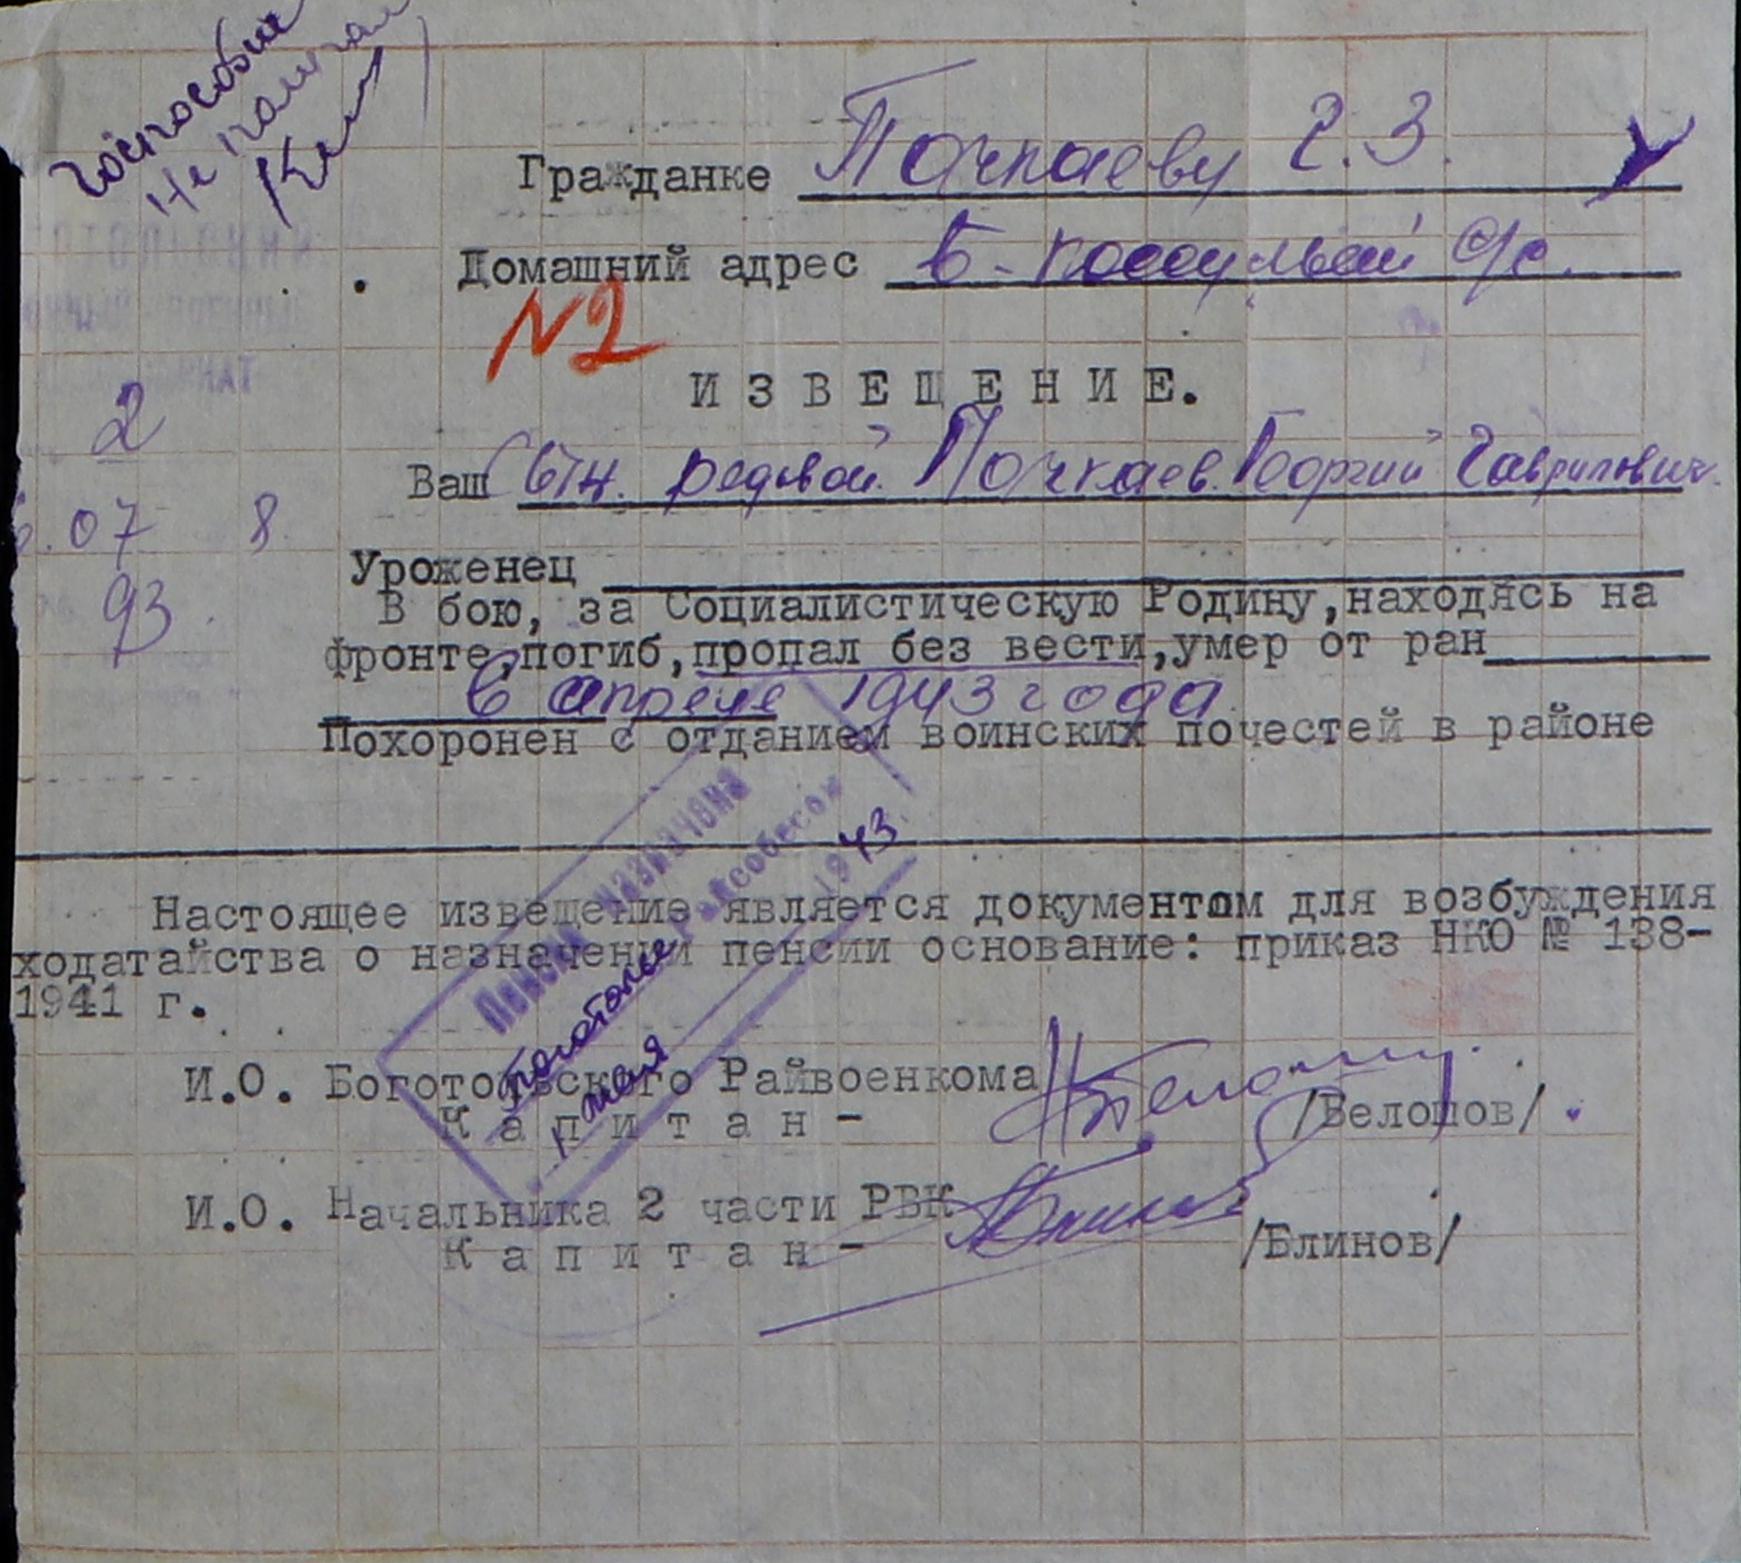 Госпособие
не получал
Гражданке Почкаеву Г. З.
Домашний адрес Б-Косуль с/с.
N2
ИЗВЕЩЕНИЕ.
2
Ваш сын. рядовой. Почкаев. Георгий Гаврилович.
07 8.
Уроженец
93.
В бою, за Социалистическую Родину, находясь на
фронте, погиб, пропал без вести, умер от ран
в апреле 1943 года
Похоронен с отданием воинских почестей в районе
Пенсия назначена
Боготольск Райсобесом
мая 1943.
Настоящее извещение является документом для возбуждения
ходатайства о назначении пенсии основание: приказ НКО № 138-
1941 г.
И.О. Боготольского Райвоенкома
Капитан -
/Белошов/
И.О. Начальника 2 части РВК
Капитан -
/Блинов/